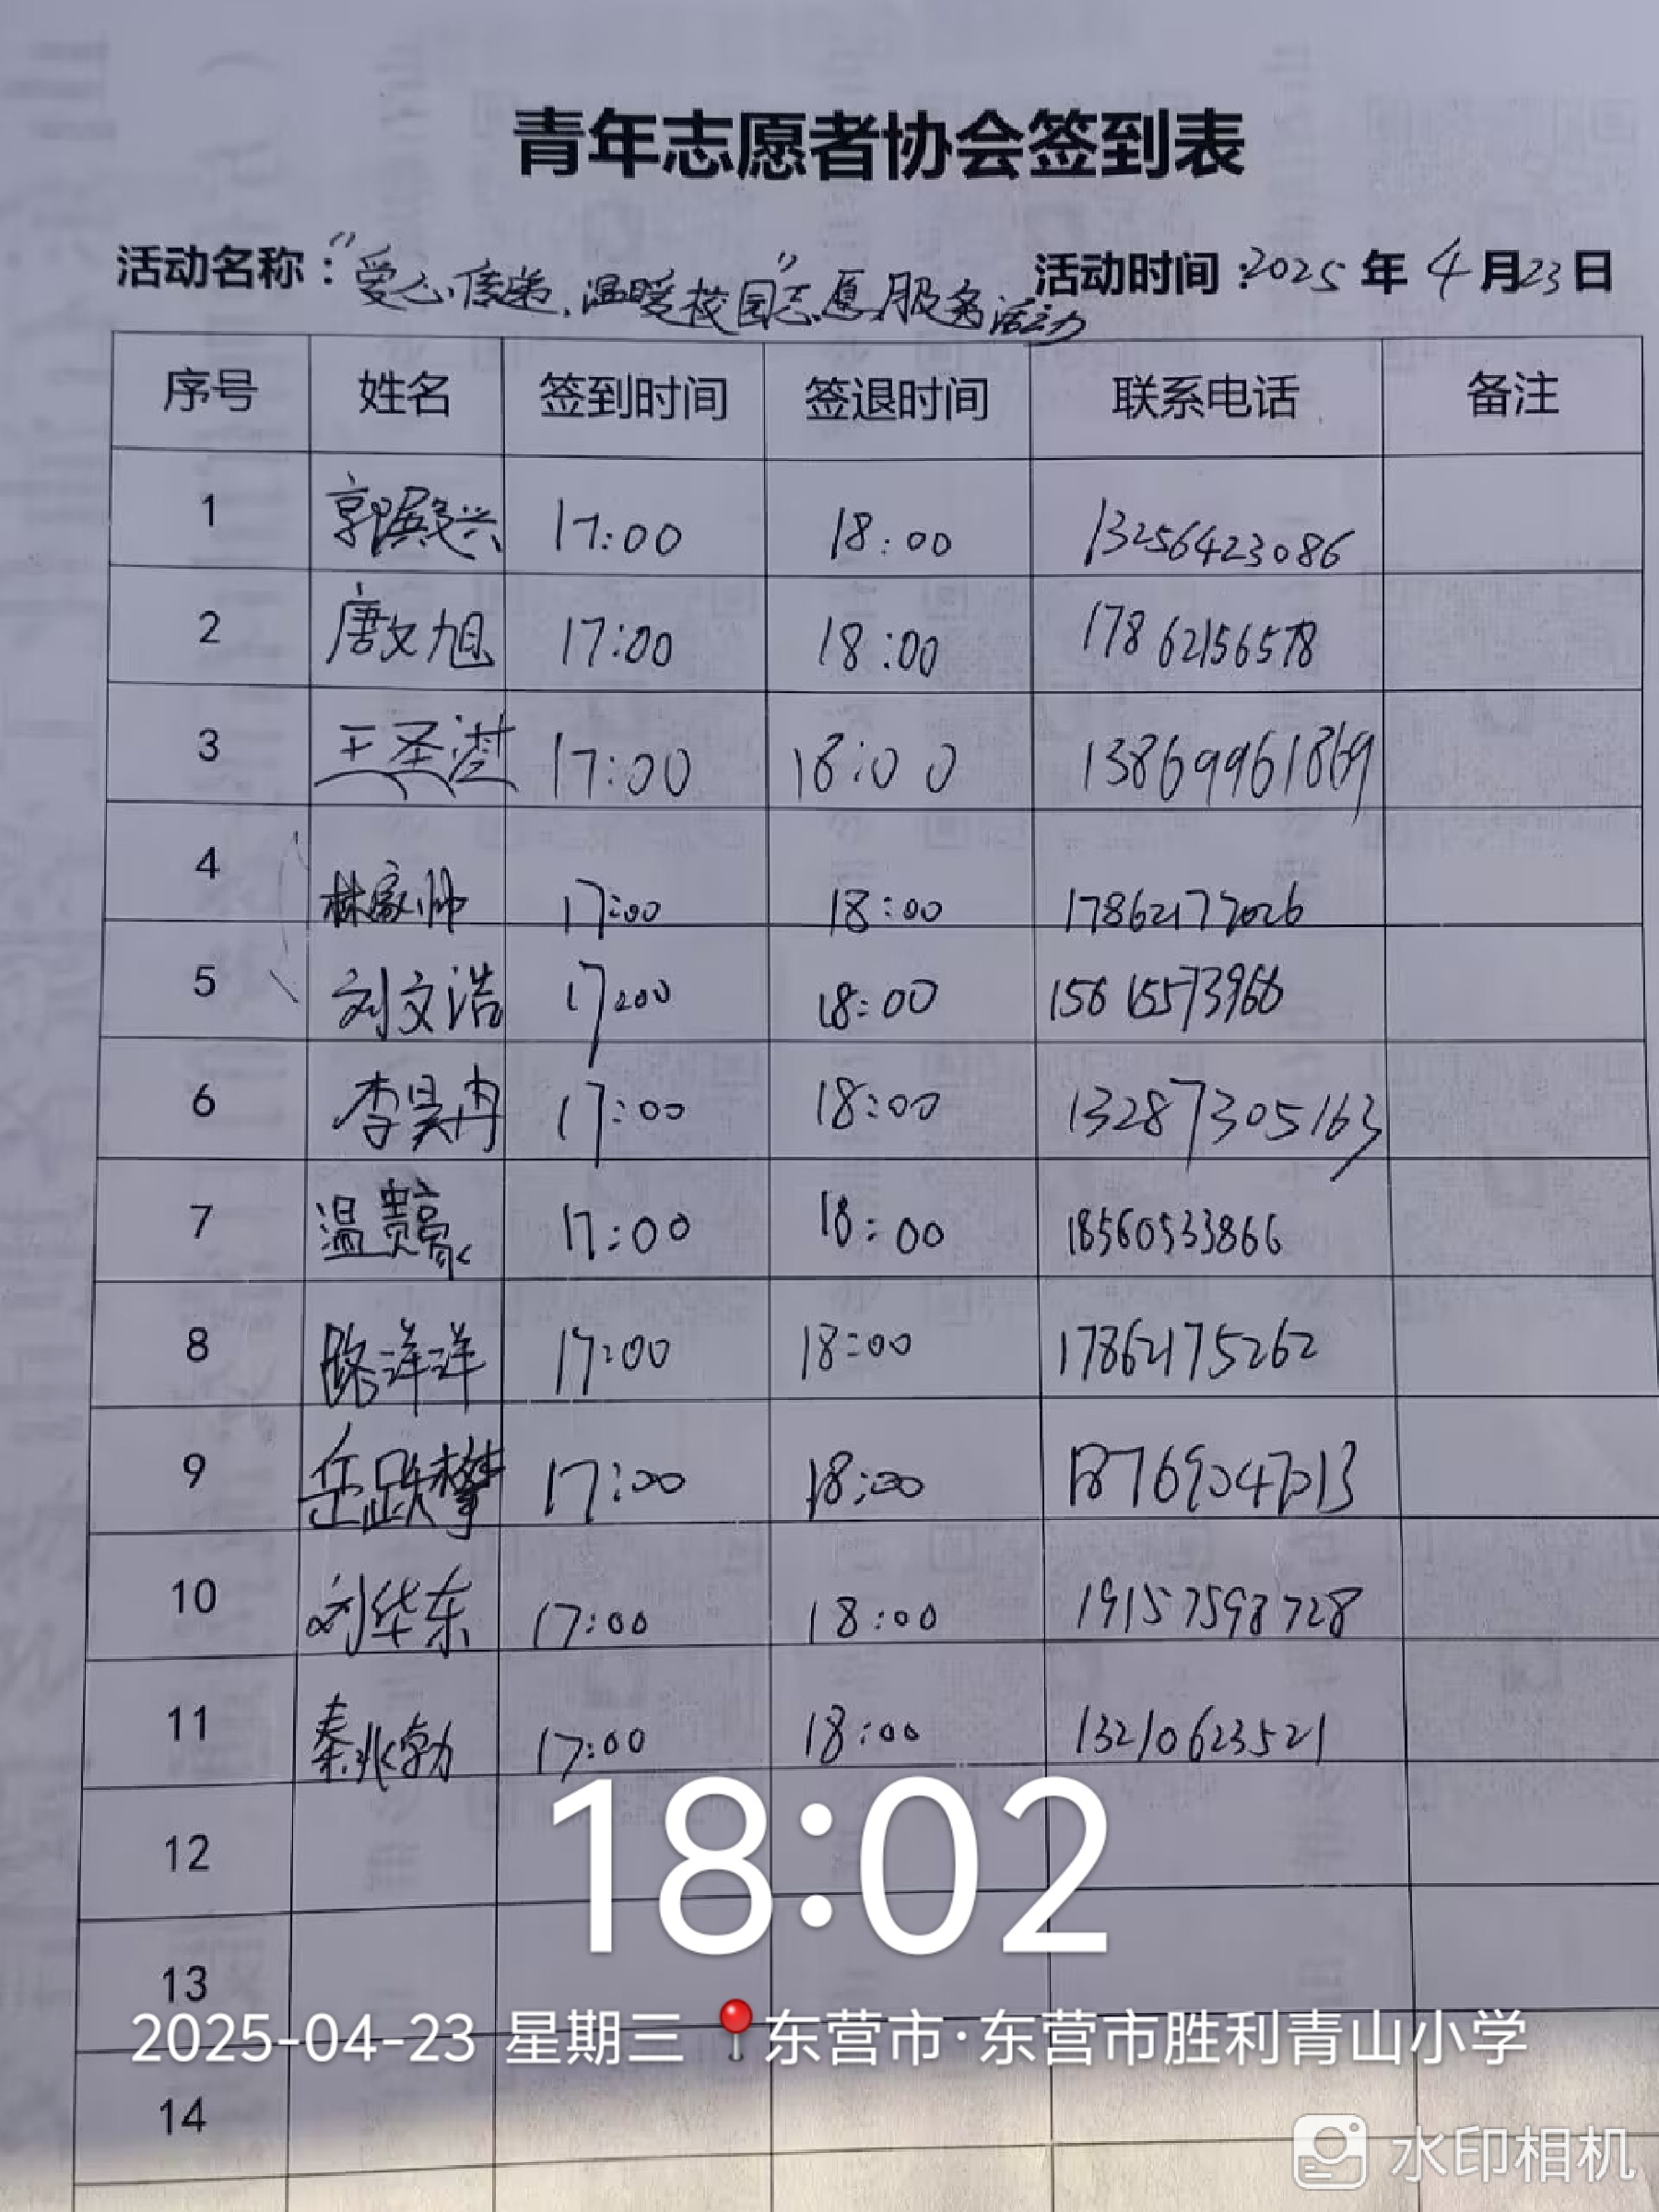 青年志愿者协会签到表
活动名称：“爱心传递，温暖校园”志愿服务活动 活动时间：2025年4月23日
序号 姓名 签到时间 签退时间 联系电话 备注
1 郭殿兴 17:00 18:00 13256423086
2 唐文旭 17:00 18:00 17862156578
3 王圣 17:00 18:00 13869961869
4 林家帅 17:00 18:00 17862177026
5 刘文浩 17:00 18:00 15615573966
6 李昊冉 17:00 18:00 13287305163
7 温贵豪 17:00 18:00 18560533866
8 路洋洋 17:00 18:00 17862175262
9 岳跃攀 17:00 18:00 18769047013
10 刘华东 17:00 18:00 19157598728
11 秦兆勃 17:00 18:00 13210623521
12
18:02
13
2025-04-23 星期三 东营市·东营市胜利青山小学
14
水印相机